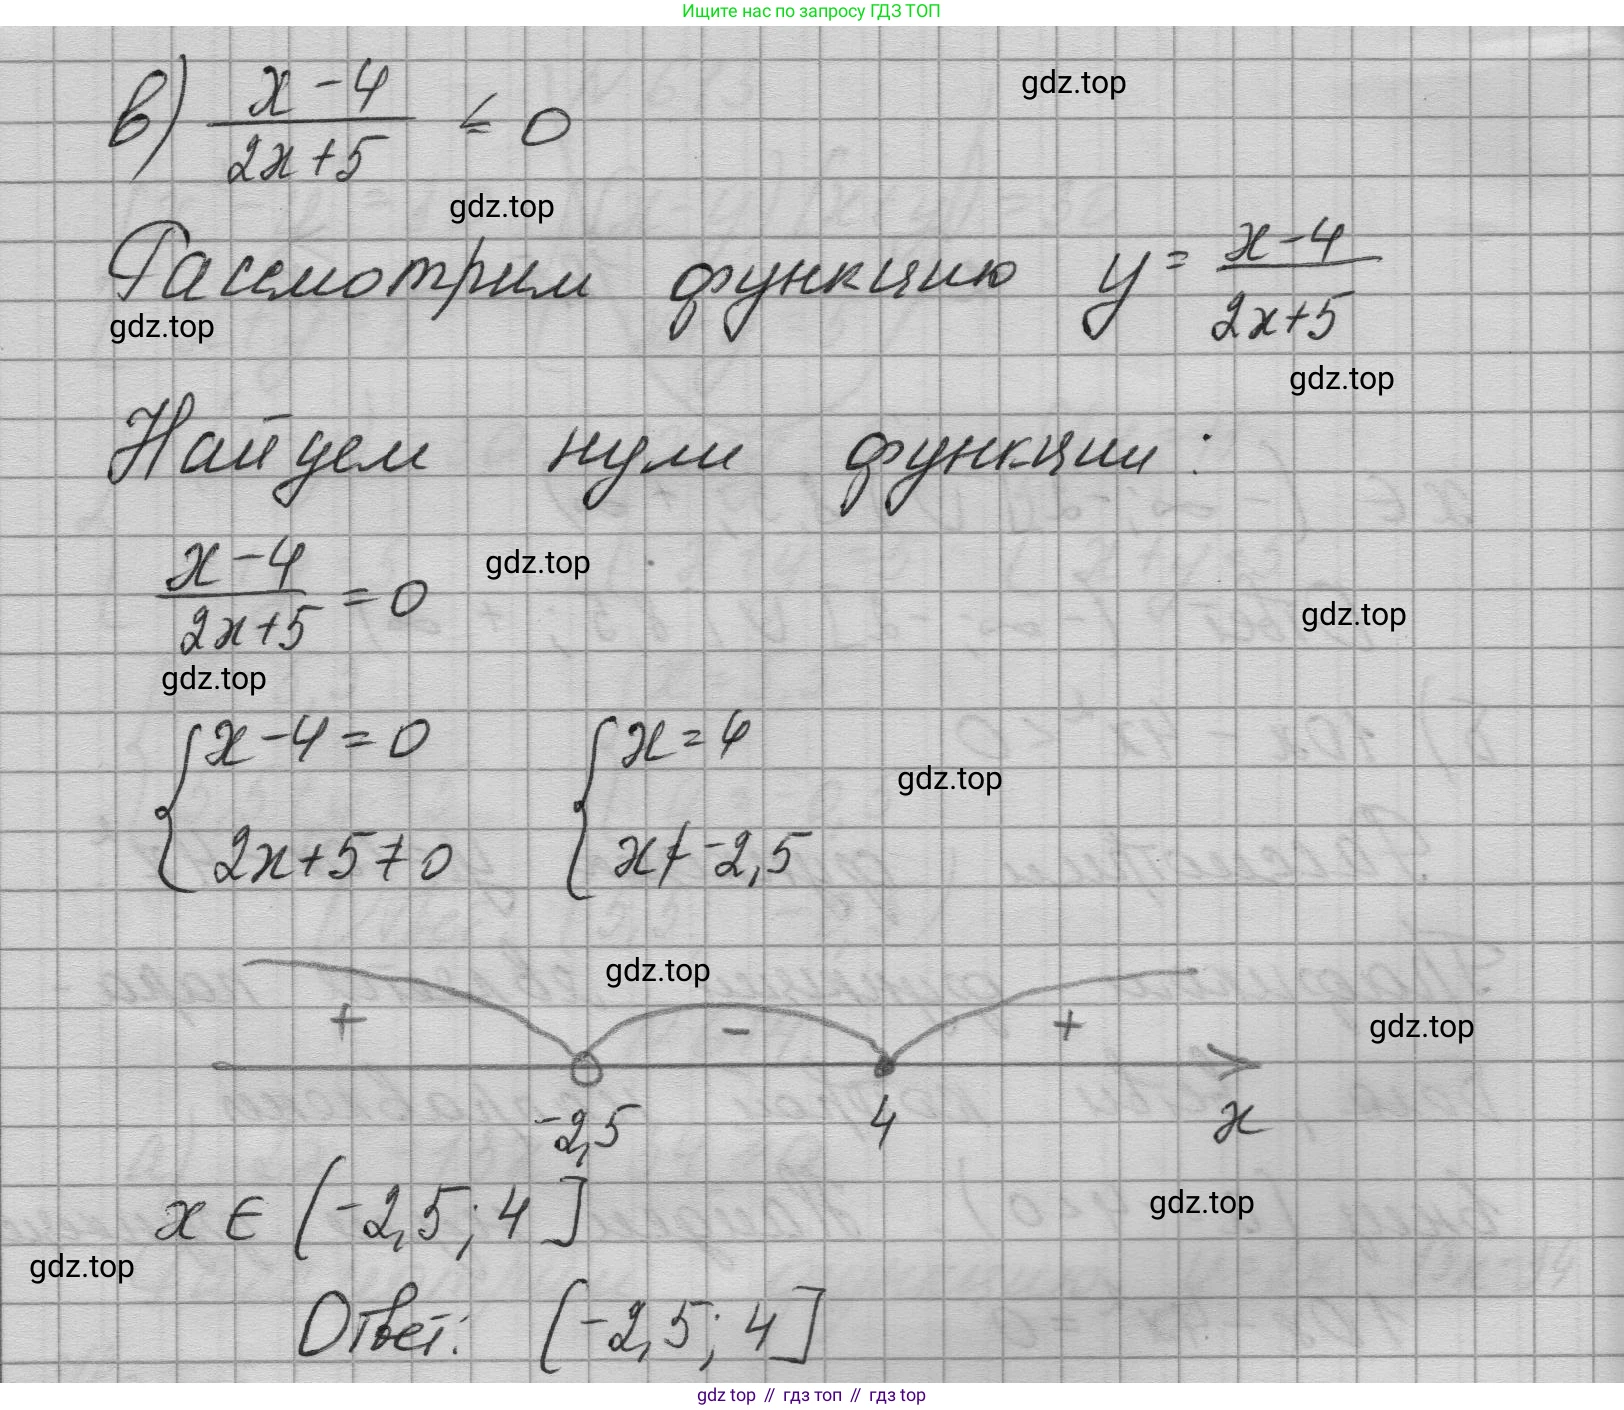 Ищите нас по запросу ГДЗ ТОП
в) (x-4)/(2x+5) ≤ 0
gdz.top
gdz.top
Рассмотрим функцию y = (x-4)/(2x+5)
gdz.top
gdz.top
Найдем нули функции:
(x-4)/(2x+5) = 0
gdz.top
gdz.top
gdz.top
{ x-4=0 { x=4
gdz.top
2x+5≠0 x≠-2,5
gdz.top
+ - +
gdz.top
-2,5 4 x
x ∈ (-2,5; 4]
gdz.top
gdz.top
Ответ: (-2,5; 4]
gdz top // гдз топ // гдз top